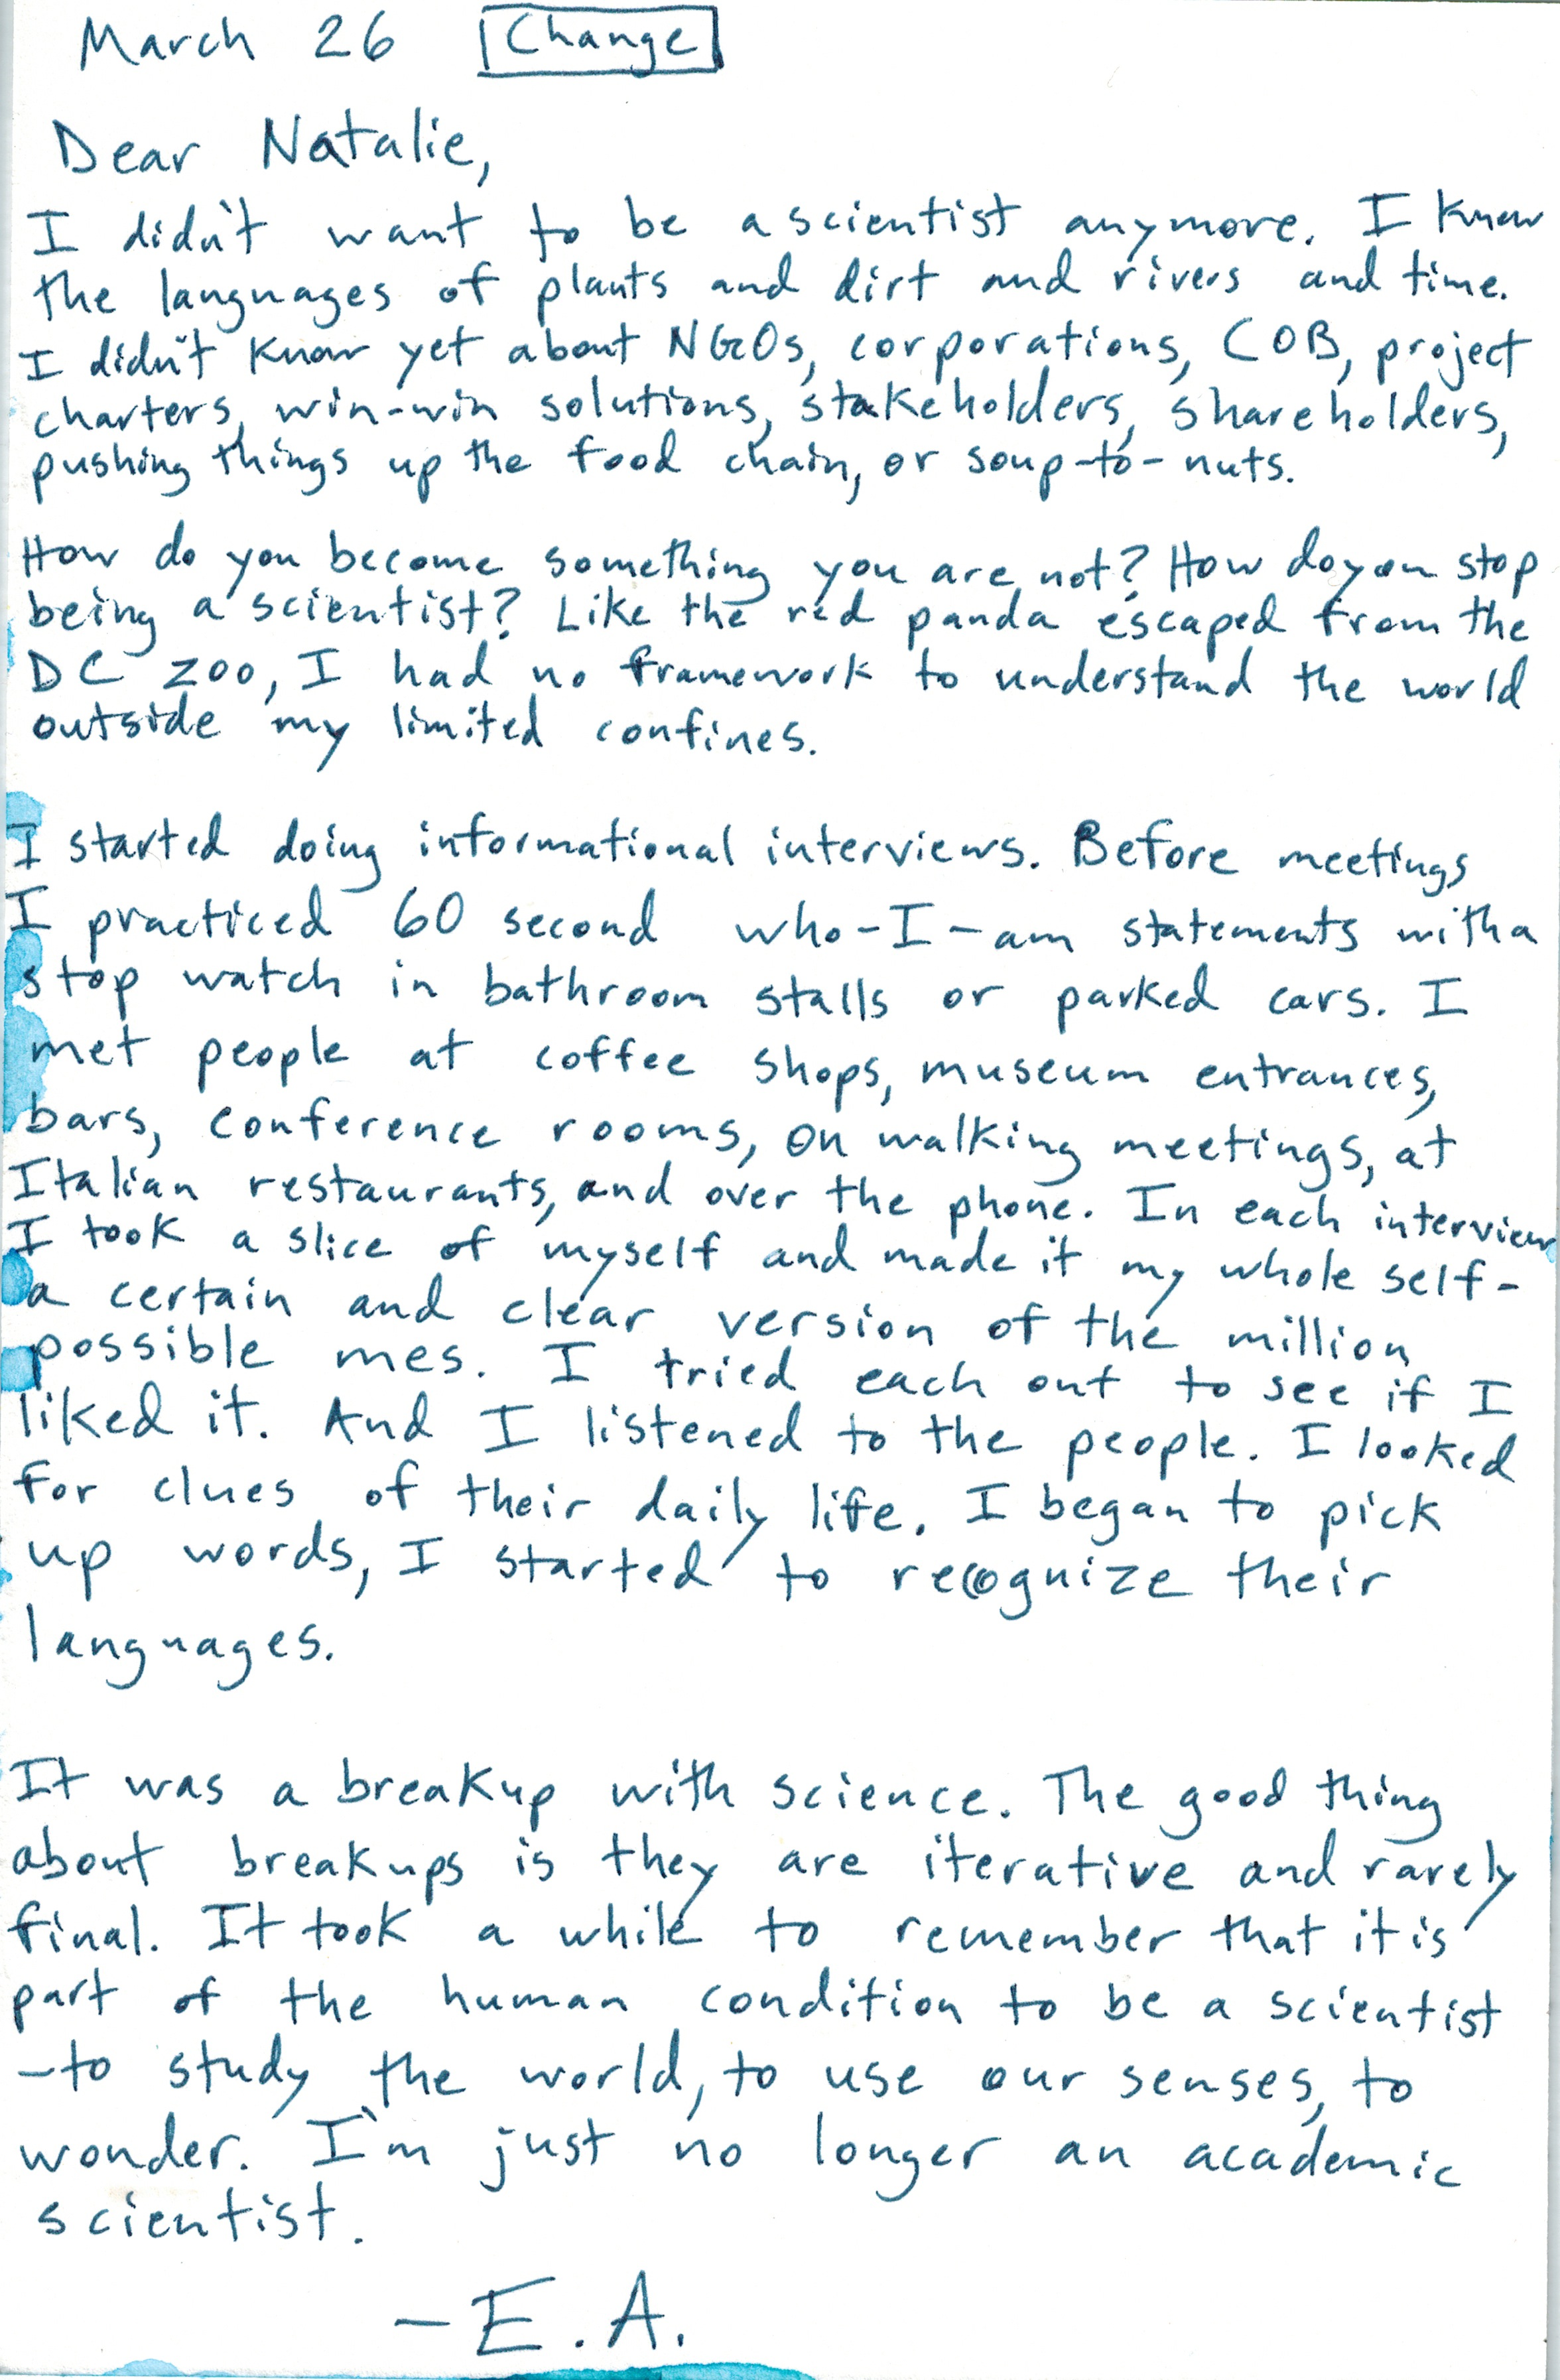 March 26 Change
Dear Natalie,
I didn't want to be a scientist anymore. I knew
the languages of plants and dirt and rivers and time.
I didn't know yet about NGOs, corporations, COB, project
charters, win-win solutions, stakeholders, shareholders,
pushing things up the food chain, or soup-to-nuts.
How do you become something you are not? How do you stop
being a scientist? Like the red panda escaped from the
DC zoo, I had no framework to understand the world
outside my limited confines.
I started doing informational interviews. Before meetings
I practiced 60 second who-I-am statements with a
stop watch in bathroom stalls or parked cars. I
met people at coffee shops, museum entrances,
bars, conference rooms, on walking meetings, at
Italian restaurants, and over the phone. In each interview
I took a slice of myself and made it my whole self-
a certain and clear version of the million
possible mes. I tried each out to see if I
liked it. And I listened to the people. I looked
for clues of their daily life. I began to pick
up words, I started to recognize their
languages.
It was a breakup with science. The good thing
about breakups is they are iterative and rarely
final. It took a while to remember that it is
part of the human condition to be a scientist
-to study the world, to use our senses, to
wonder. I'm just no longer an academic
scientist.
-E.A.